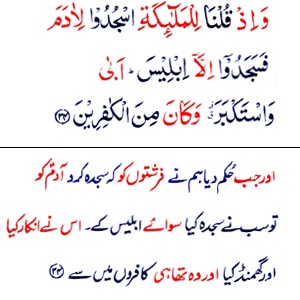 وَاِذْ قُلْنَا لِلْمَلٰٓئِكَةِ اسْجُدُوْا لِاٰدَمَ
فَسَجَدُوْٓا اِلَّآ اِبْلِيْسَ ؕ اَبٰى
وَاسْتَكْبَرَ ٗۖ وَكَانَ مِنَ الْكٰفِرِيْنَ ﴿۳۴﴾
اور جب حُکم دیا ہم نے فرشتوں کو کہ سجدہ کرو آدمؑ کو
تو سب نے سجدہ کیا سوائے ابلیس کے۔ اس نے انکار کیا
اور گھمنڈ کیا اور وہ تھا ہی کافروں میں سے ﴿۳۴﴾